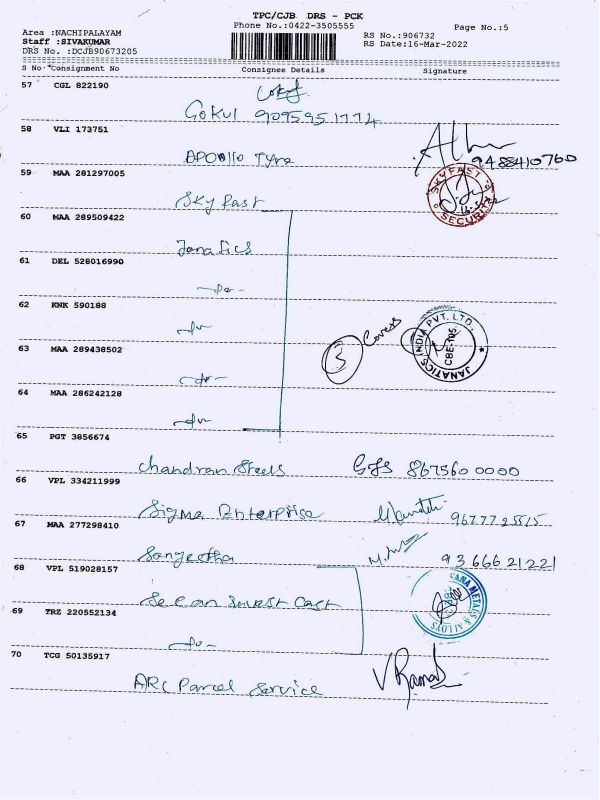 TPC/CJB DRS - PCK
Area :NACHIPALAYAM
Phone No.:0422-3505555
Page No.:5
Staff :SIVAKUMAR
RS No.:906732
DRS No. :DCJB90673205
RS Date:16-Mar-2022
S No Consignment No Consignee Details Signature
57 CGL 822190
Gokul 9095951774
58 VLI 173751
Apollo Tyre 9488410760
59 MAA 281297005
Sky Fast
SKYFAST SECURITY
60 MAA 289509422
Janatics
61 DEL 528016990
-do-
62 KNK 590188
-do-
3 Covers
JANATICS INDIA PVT. LTD.
CBE-105
63 MAA 289438502
-do-
64 MAA 286242128
-do-
65 PGT 3856674
Chandran Steels GJS 867560 0000
66 VPL 334211999
Sigma Enterprise 9677725515
67 MAA 277298410
Sangeetha 9366621221
68 VPL 519028157
Secan Invest Cast
METALS & ALLOYS
69 TRZ 220552134
-do-
70 TCG 50135917
ARC Parcel Service V Rama